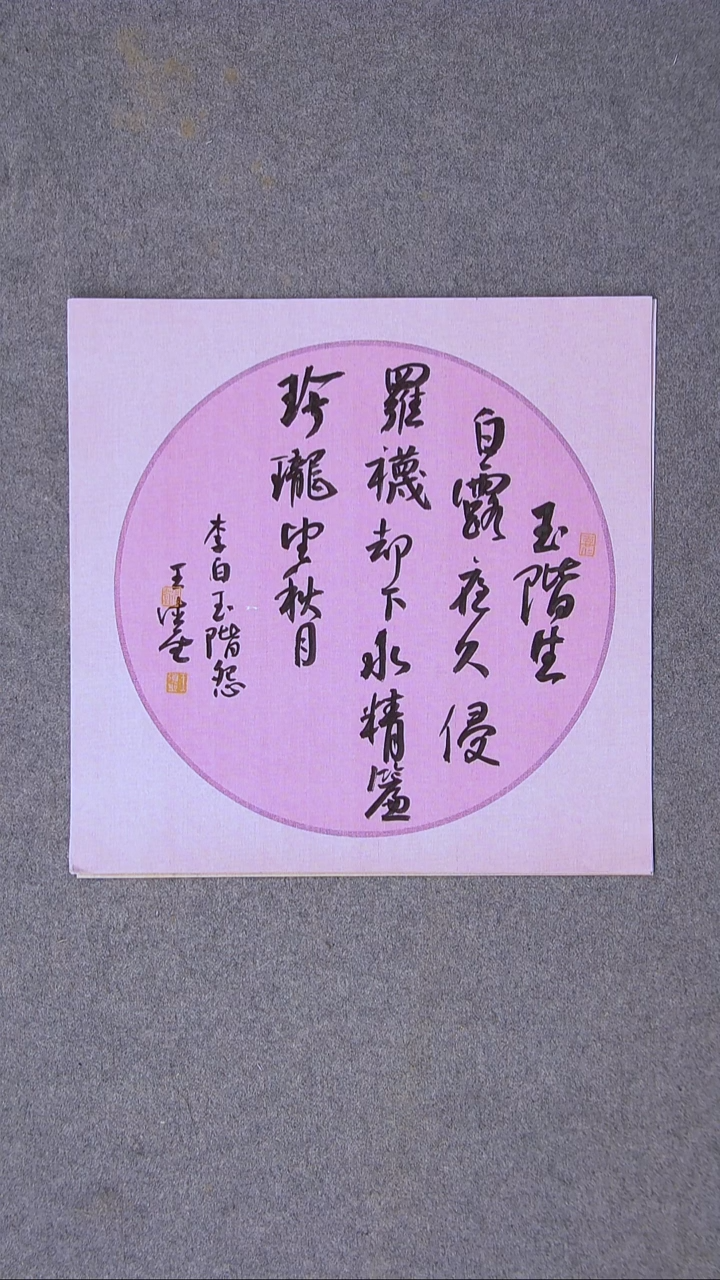 玉階生
白露夜久侵
羅襪却下水精簾
玲瓏望秋月
李白玉階怨
王